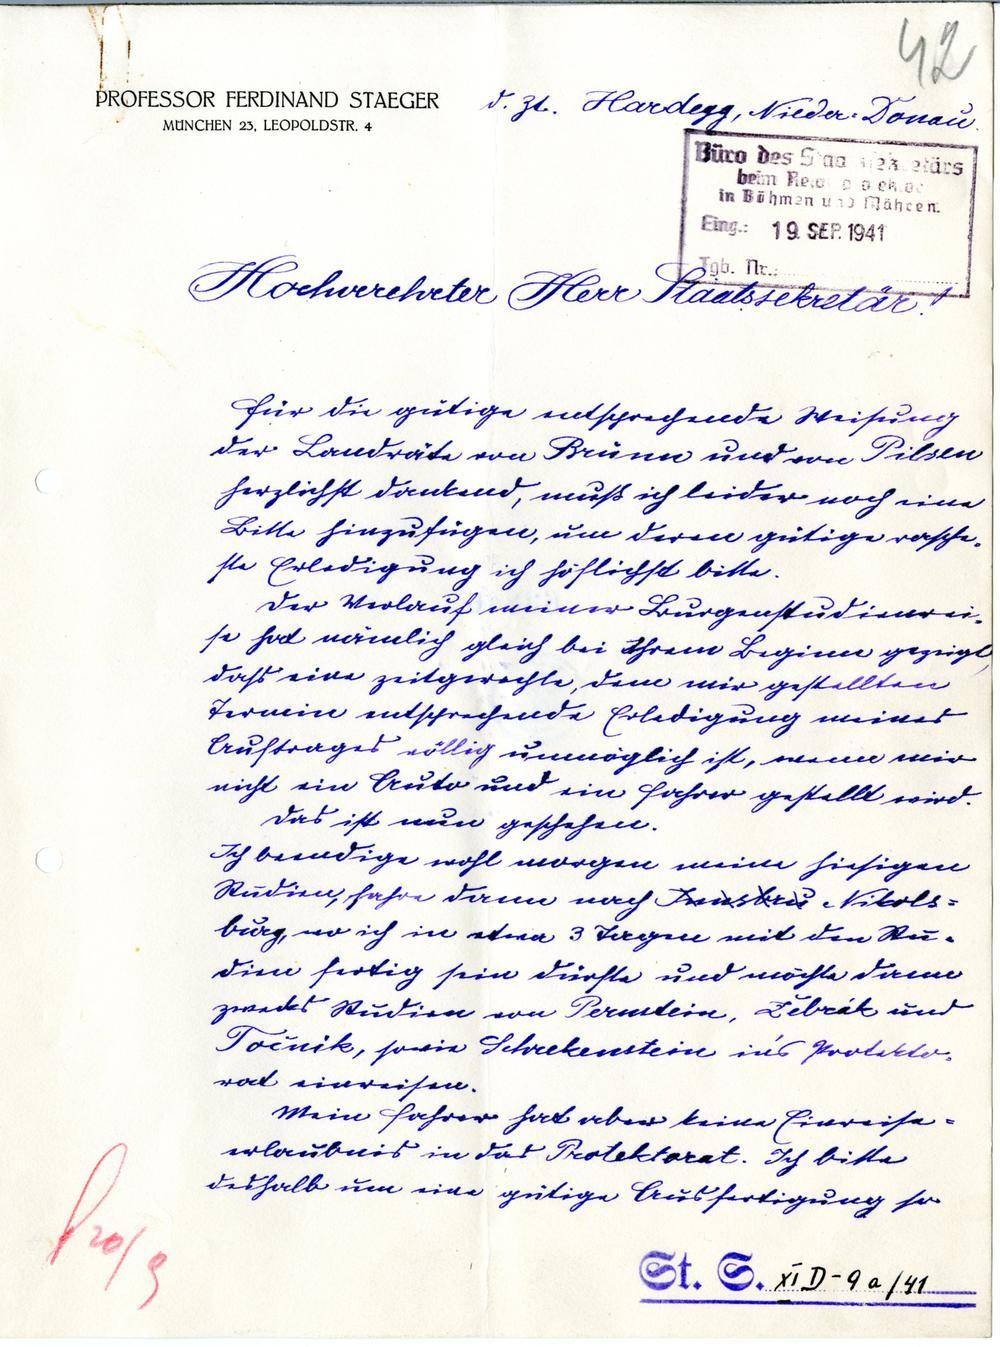 42
PROFESSOR FERDINAND STAEGER
MÜNCHEN 23, LEOPOLDSTR. 4
d. Zt. Hardegg, Nieder-Donau.
Büro des Staatssekretärs
beim Reichsprotektor
in Böhmen und Mähren.
Eing.: 19. SEP. 1941
Tgb. Nr.:
Hochverehrter Herr Staatssekretär!
Für die gütige entsprechende Weisung
der Landräte von Brünn und von Pilsen
herzlichst dankend, muß ich leider noch eine
Bitte hinzufügen, um deren gütige rasche-
ste Erledigung ich höflichst bitte.
Der Verlauf meiner Burgenstudienrei-
se hat nämlich gleich bei Ihrem Beginn gezeigt,
daß eine zeitgerechte, dem mir gestellten
Termin entsprechende Erledigung meines
Auftrages völlig unmöglich ist, wenn mir
nicht ein Auto und ein Fahrer gestellt wird.
Das ist nun geschehen.
Ich beendige wohl morgen meine hiesigen
Studien, fahre dann nach Innsbru Nikols=
burg, wo ich in etwa 3 Tagen mit den Stu-
dien fertig sein dürfte und möchte dann
zwecks Studien von Pernstein, Žebrák und
Točnik, sowie Schreckenstein in's Protekto-
rat einreisen.
Mein Fahrer hat aber keine Einreise=
erlaubnis in das Protektorat. Ich bitte
deshalb um eine gütige Ausfertigung so
20/9
St. S. XI D-9a/41